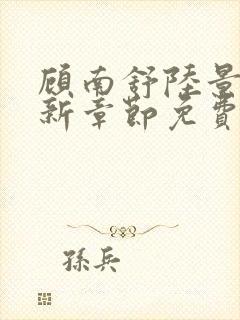 顾南舒陸景
新章節免費
孫兵